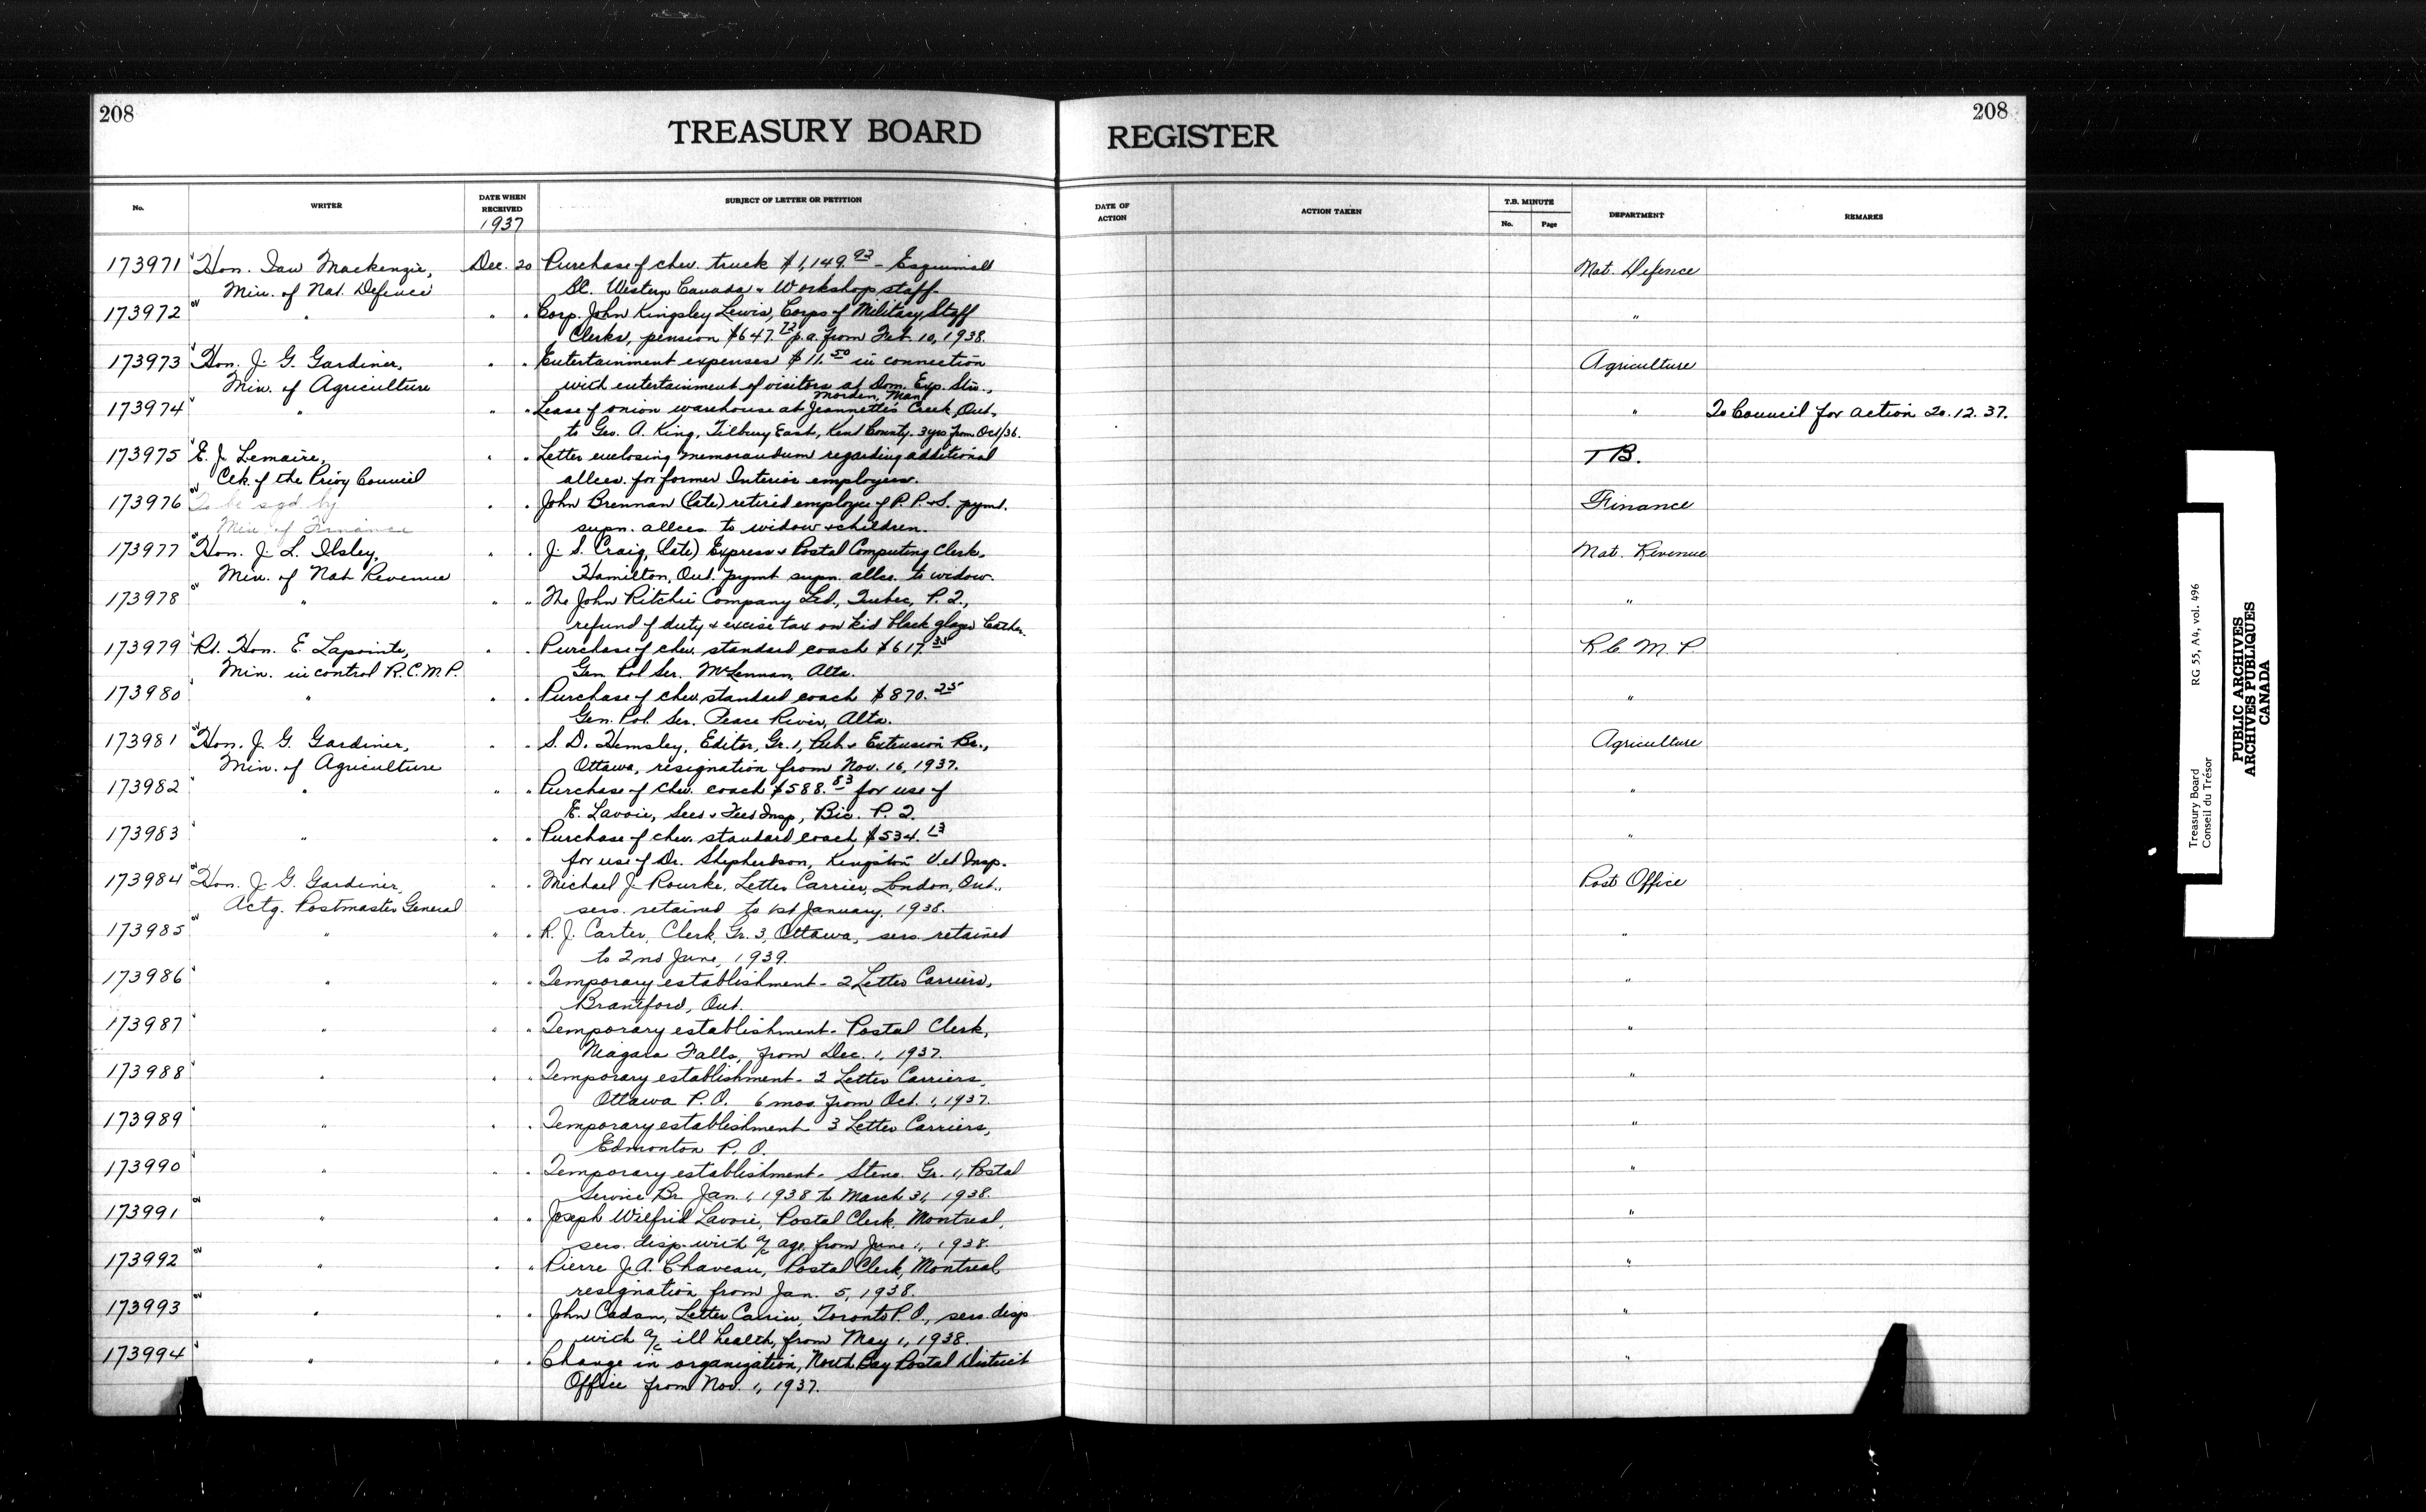 208
208
TREASURY BOARD
REGISTER
No.
WRITER
DATE WHEN RECEIVED
1937
SUBJECT OF LETTER OR PETITION
DATE OF ACTION
ACTION TAKEN
T.B. MINUTE
No.
Page
DEPARTMENT
REMARKS
173971 Hon. Ian Mackenzie, Dec. 20 Purchase of chev. truck $1,149.93 - Esquimalt Nat. Defence
Min. of Nat. Defence BC. Western Canada - Workshop staff.
173972 " " " Corp. John Kingsley Lewis, Corps of Military Staff "
Clerks, pension $647.73 p.a. from Feb. 10, 1938.
173973 Hon. J. G. Gardiner, " " Entertainment expenses $11.50 in connection Agriculture
Min. of Agriculture with entertainment of visitors at Dom. Exp. Stn.,
Morden, Man.
173974 " " " Lease of onion warehouse at Jeannette's Creek, Ont. " To Council for action 20.12.37.
to Geo. A. King, Tilbury East, Kent County. 3 yrs from Oct/36.
173975 E. J. Lemaire, " " Letter enclosing memorandum regarding additional T B.
Clk. of the Privy Council allces. for former Interior employees.
173976 To be sgd. by " " John Brennan (late) retired employee of P. P. & S. pymt. Finance
Min. of Finance supn. allces. to widow & children.
173977 Hon. J. L. Ilsley, " " J. S. Craig, (late) Express & Postal Computing Clerk, Nat. Revenue
Min. of Nat. Revenue Hamilton, Ont. pymt supn. allce. to widow.
173978 " " " The John Ritchie Company Ltd., Quebec, P. Q., "
refund of duty & excise tax on kid black glazed leather.
173979 Rt. Hon. E. Lapointe, " " Purchase of chev. standard coach $617.35 R. C. M. P.
Min. in control R.C.M.P. Gen. Pol Ser. McLennan, Alta.
173980 " " " Purchase of chev. standard coach $870.25 "
Gen. Pol. Ser. Peace River, Alta.
173981 Hon. J. G. Gardiner, " " S. D. Hemsley, Editor, Gr. 1, Pub & Extension Br., Agriculture
Min. of Agriculture Ottawa, resignation from Nov. 16, 1937.
173982 " " " Purchase of Chev. coach $588.83 for use of "
E. Lavoie, Seed & Feed Insp, Bic. P. Q.
173983 " " " Purchase of chev. standard coach $534.13 "
for use of Dr. Shepherdson, Kingston Vet Insp.
173984 Hon. J. G. Gardiner, " " Michael J. Rourke, Letter Carrier, London, Ont., Post Office
Actg. Postmaster General sers. retained to 1st January, 1938.
173985 " " " R. J. Carter, Clerk, Gr. 3, Ottawa, sers. retained "
to 2nd June, 1939.
173986 " " " Temporary establishment - 2 Letter Carriers, "
Brantford, Ont.
173987 " " " Temporary establishment - Postal Clerk, "
Niagara Falls, from Dec. 1, 1937.
173988 " " " Temporary establishment - 2 Letter Carriers, "
Ottawa P. O. 6 mos. from Oct. 1, 1937.
173989 " " " Temporary establishment 3 Letter Carriers, "
Edmonton P. O.
173990 " " " Temporary establishment - Steno. Gr. 1, Postal "
Service Br. Jan. 1, 1938 to March 31, 1938.
173991 " " " Joseph Wilfrid Lavoie, Postal Clerk, Montreal, "
sers. disp. with a/c age, from June 1, 1938.
173992 " " " Pierre J. A. Chaveau, Postal Clerk, Montreal "
resignation from Jan. 5, 1938.
173993 " " " John Cadan, Letter Carrier, Toronto P. O., sers. disp "
with a/c ill health, from May 1, 1938.
173994 " " " Change in organization, North Bay Postal District "
Office from Nov. 1, 1937.
Treasury Board RG 55, A4, vol. 496
Conseil du Trésor
PUBLIC ARCHIVES
ARCHIVES PUBLIQUES
CANADA